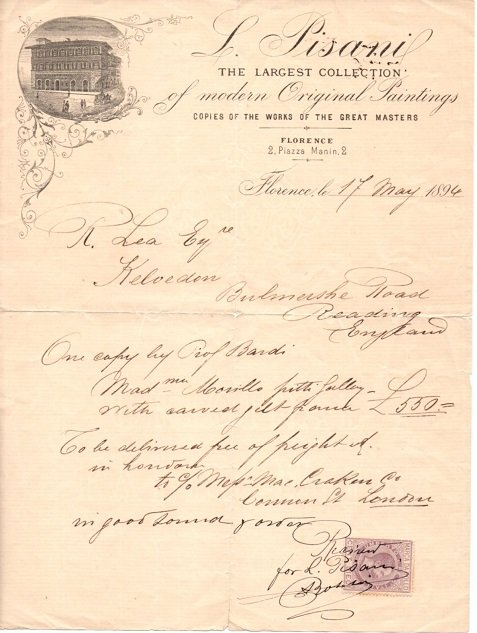 L. Pisani
THE LARGEST COLLECTION
of modern Original Paintings
COPIES OF THE WORKS OF THE GREAT MASTERS
FLORENCE
2, Piazza Manin, 2
Florence, le 17 May 1894
R. Lea Eqre
Kelvedon
Bulmershe Road
Reading
England
One copy by Prof Bardi
Madna Morillo pitti Galley
with carved gilt frame £
To be delivered free of freight &.
in London
to c/o Messrs Mac. Craken Co
Cannon St London
in good sound & order
for L. Pisani